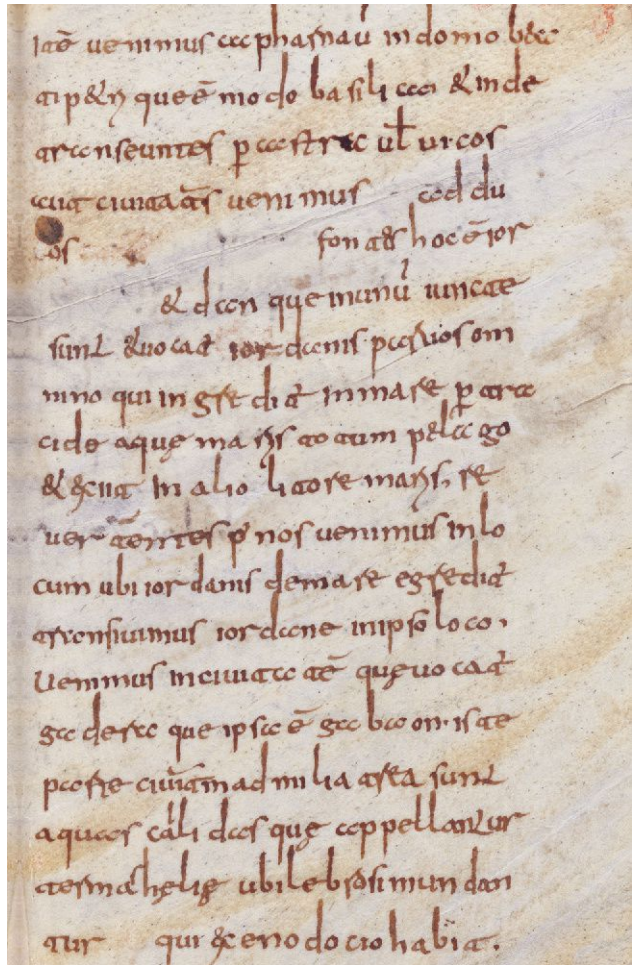 tatē uenimus caphasnaū in domo beā
ti p&ri que ē modo basilica & inde
transeuntes ꝑ castra uł uicos
uel ciuitatēs uenimus ad du
os fontes hoc ē ior
& dan que inunū iuncte
sunt & uocat̄ iordanis paruos om
nino qui ingreditur in mare ꝑ tra
cide aquę maris totum pelago
& exiit in alio litore maris. re
uertentes p̄ nos uenimus in lo
cum ubi iordanis de mare egredit̄
transiuimus iordane in ipso loco.
Uenimus in ciuitatē quę uocat̄
gadera que ipsa ē gabaon. iste
parte ciuitatī ad milia trea sunt
aquas calidas quę appellantur
termas helię ubi lebrosi mundan
tur qui & xenodocio habīt.